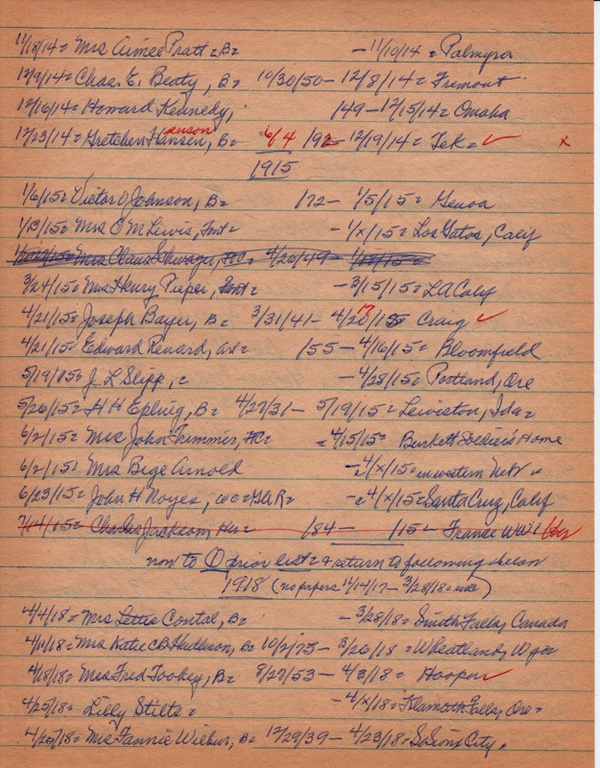 11/18/14= Mrs Aimée Pratt = B= -11/10/14= Palmyra
12/9/14= Chas. E. Beaty, B= 10/30/50-12/8/14= Fremont
12/16/14= Howard Kennedy, /49-12/15/14= Omaha
12/23/14= Gretchen Hansen, anson B= 6/4 /92-12/19/14= Tek= ✓ x
1915
1/6/15= Victor J Johnson, B= /72- 1/5/15= Genoa
1/13/15= Mrs O M Lewis, -1/x/15= Los Gatos, Calif
Mrs Claus Schwager, 4/20/49-
3/24/15= Mrs Henry Pieper, -3/15/15= LA Calif
4/21/15= Joseph Bayer, B= 3/31/41- Craig ✓
4/21/15= Edward Renard, /55-4/16/15= Bloomfield
5/19/15= J. L Slipp, = -4/28/15= Portland, Ore
5/26/15= H H Epling, B= 4/27/31- 5/19/15= Lewiston, Ida=
6/2/15= Mrs John Trimmer, = 4/15/15= Burkett Soldier's Home
6/2/15= Mrs Bige Arnold -4/x/15= in western Nebr
6/23/15= John H Noyes, -4/x/15= Santa Cruz, Calif
7/14/15= Charles Jackson, /84- /15= France
now to O prior list = & return to following below
1918 (no papers 11/14/17-3/28/18=
4/4/18= Mrs Contal, B= -3/28/18= Smith Falls, Canada
4/11/18= Mrs Katie B= 10/2/75- 3/26/18= Wheatland, Wyo=
4/18/18= Mrs Fred Tookey, B= 8/27/53- 4/3/18= Hooper ✓
4/25/18= Lilly Stilts = -4/x/18= Klamath Falls, Ore=
4/25/18= Mrs Fannie Wilbur, B= 12/29/39-4/23/18= So Sioux City=